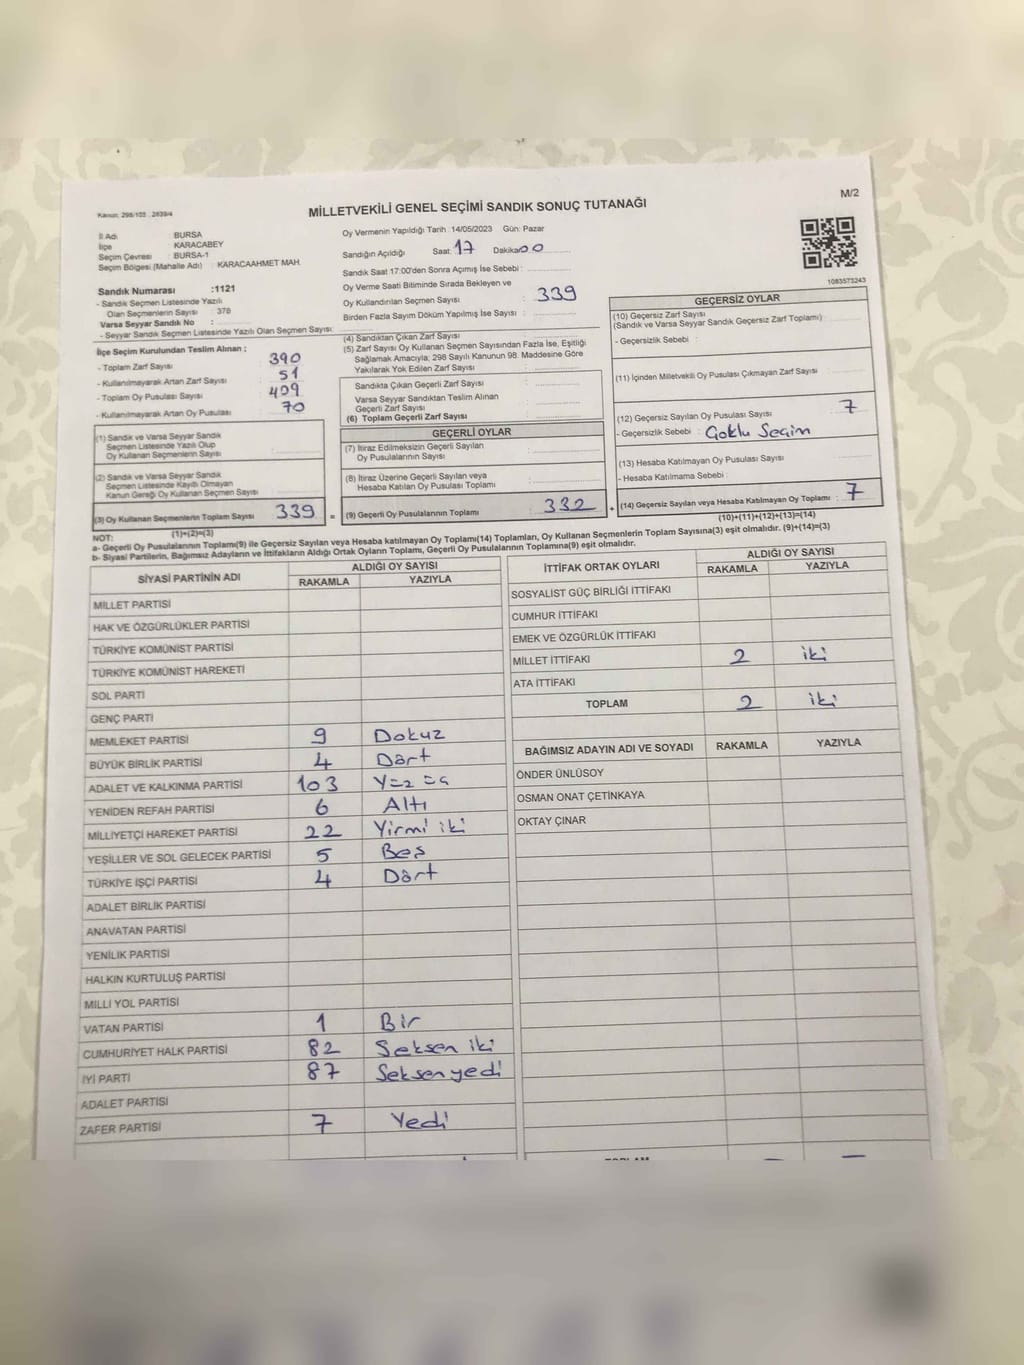 M/2
Kanun: 298/105 , 2839/4
MİLLETVEKİLİ GENEL SEÇİMİ SANDIK SONUÇ TUTANAĞI
İl Adı : BURSA
İlçe : KARACABEY
Seçim Çevresi : BURSA-1
Seçim Bölgesi (Mahalle Adı) : KARACAAHMET MAH.
Sandık Numarası :1121
- Sandık Seçmen Listesinde Yazılı
Olan Seçmenlerin Sayısı : 378
Varsa Seyyar Sandık No :
- Seyyar Sandık Seçmen Listesinde Yazılı Olan Seçmen Sayısı:
Oy Vermenin Yapıldığı Tarih :14/05/2023 Gün: Pazar
Sandığın Açıldığı Saat: 17 Dakika: 00
Sandık Saat 17:00'den Sonra Açımış İse Sebebi :
Oy Verme Saati Bitiminde Sırada Bekleyen ve
Oy Kullandırılan Seçmen Sayısı : 339
Birden Fazla Sayım Döküm Yapılmış İse Sayısı :
1083573243
İlçe Seçim Kurulundan Teslim Alınan ;
- Toplam Zarf Sayısı : 390
- Kullanılmayarak Artan Zarf Sayısı : 51
- Toplam Oy Pusulası Sayısı : 409
- Kullanılmayarak Artan Oy Pusulası : 70
(1) Sandık ve Varsa Seyyar Sandık
Seçmen Listesinde Yazılı Olup
Oy Kullanan Seçmenlerin Sayısı :
(2) Sandık ve Varsa Seyyar Sandık
Seçmen Listesinde Kayıtlı Olmayan
Kanun Gereği Oy Kullanan Seçmen Sayısı :
(3) Oy Kullanan Seçmenlerin Toplam Sayısı : 339 =
(1)+(2)=(3)
(4) Sandıktan Çıkan Zarf Sayısı :
(5) Zarf Sayısı Oy Kullanan Seçmen Sayısından Fazla İse, Eşitliği
Sağlamak Amacıyla; 298 Sayılı Kanunun 98. Maddesine Göre
Yakılarak Yok Edilen Zarf Sayısı :
Sandıkta Çıkan Geçerli Zarf Sayısı :
Varsa Seyyar Sandıktan Teslim Alınan
Geçerli Zarf Sayısı :
(6) Toplam Geçerli Zarf Sayısı :
GEÇERLİ OYLAR
(7) İtiraz Edilmeksizin Geçerli Sayılan
Oy Pusulalarının Sayısı :
(8) İtiraz Üzerine Geçerli Sayılan veya
Hesaba Katılan Oy Pusulası Toplamı :
(9) Geçerli Oy Pusulalarının Toplamı : 332 +
GEÇERSİZ OYLAR
(10) Geçersiz Zarf Sayısı
(Sandık ve Varsa Seyyar Sandık Geçersiz Zarf Toplamı) :
- Geçersizlik Sebebi :
(11) İçinden Milletvekili Oy Pusulası Çıkmayan Zarf Sayısı :
(12) Geçersiz Sayılan Oy Pusulası Sayısı : 7
- Geçersizlik Sebebi : Çoklu Seçim
(13) Hesaba Katılmayan Oy Pusulası Sayısı :
- Hesaba Katılmama Sebebi :
(14) Geçersiz Sayılan veya Hesaba Katılmayan Oy Toplamı : 7
(10)+(11)+(12)+(13)=(14)
NOT:
a- Geçerli Oy Pusulalarının Toplamı(9) ile Geçersiz Sayılan veya Hesaba katılmayan Oy Toplamı(14) Toplamları, Oy Kullanan Seçmenlerin Toplam Sayısına(3) eşit olmalıdır. (9)+(14)=(3)
b- Siyasi Partilerin, Bağımsız Adayların ve İttifakların Aldığı Ortak Oyların Toplamı, Geçerli Oy Pusulalarının Toplamına(9) eşit olmalıdır.
SİYASİ PARTİNİN ADI ALDIĞI OY SAYISI
RAKAMLA YAZIYLA
MİLLET PARTİSİ
HAK VE ÖZGÜRLÜKLER PARTİSİ
TÜRKİYE KOMÜNİST PARTİSİ
TÜRKİYE KOMÜNİST HAREKETİ
SOL PARTİ
GENÇ PARTİ
MEMLEKET PARTİSİ 9 Dokuz
BÜYÜK BİRLİK PARTİSİ 4 Dört
ADALET VE KALKINMA PARTİSİ 103 Yüz üç
YENİDEN REFAH PARTİSİ 6 Altı
MİLLİYETÇİ HAREKET PARTİSİ 22 Yirmi iki
YEŞİLLER VE SOL GELECEK PARTİSİ 5 Beş
TÜRKİYE İŞÇİ PARTİSİ 4 Dört
ADALET BİRLİK PARTİSİ
ANAVATAN PARTİSİ
YENİLİK PARTİSİ
HALKIN KURTULUŞ PARTİSİ
MİLLİ YOL PARTİSİ
VATAN PARTİSİ 1 Bir
CUMHURİYET HALK PARTİSİ 82 Seksen iki
İYİ PARTİ 87 Seksen yedi
ADALET PARTİSİ
ZAFER PARTİSİ 7 Yedi
İTTİFAK ORTAK OYLARI ALDIĞI OY SAYISI
RAKAMLA YAZIYLA
SOSYALİST GÜÇ BİRLİĞİ İTTİFAKI
CUMHUR İTTİFAKI
EMEK VE ÖZGÜRLÜK İTTİFAKI
MİLLET İTTİFAKI 2 iki
ATA İTTİFAKI
TOPLAM 2 iki
BAĞIMSIZ ADAYIN ADI VE SOYADI RAKAMLA YAZIYLA
ÖNDER ÜNLÜSOY
OSMAN ONAT ÇETİNKAYA
OKTAY ÇINAR